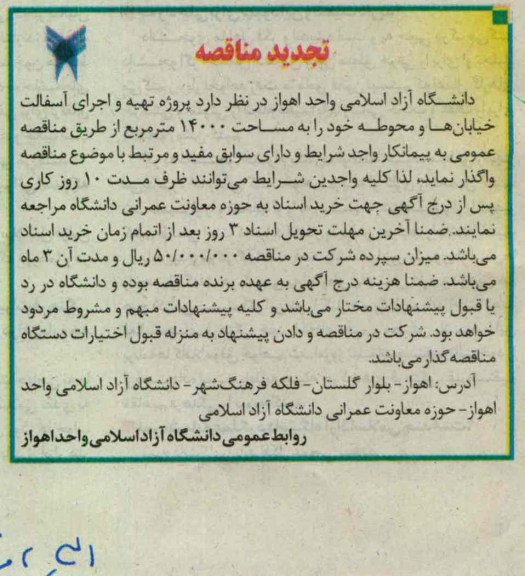 تجدید مناقصه
دانشگاه آزاد اسلامی واحد اهواز در نظر دارد پروژه تهیه و اجرای آسفالت
خیابان‌ها و محوطه خود را به مساحت ۱۴۰۰۰ مترمربع از طریق مناقصه
عمومی به پیمانکار واجد شرایط و دارای سوابق مفید و مرتبط با موضوع مناقصه
واگذار نماید، لذا کلیه واجدین شرایط می‌توانند ظرف مدت ۱۰ روز کاری
پس از درج آگهی جهت خرید اسناد به حوزه معاونت عمرانی دانشگاه مراجعه
نمایند. ضمنا آخرین مهلت تحویل اسناد ۳ روز بعد از اتمام زمان خرید اسناد
می‌باشد. میزان سپرده شرکت در مناقصه ۵۰/۰۰۰/۰۰۰ ریال و مدت آن ۳ ماه
می‌باشد. ضمنا هزینه درج آگهی به عهده برنده مناقصه بوده و دانشگاه در رد
یا قبول پیشنهادات مختار می‌باشد و کلیه پیشنهادات مبهم و مشروط مردود
خواهد بود. شرکت در مناقصه و دادن پیشنهاد به منزله قبول اختیارات دستگاه
مناقصه‌گذار می‌باشد.
آدرس: اهواز- بلوار گلستان- فلکه فرهنگ‌شهر- دانشگاه آزاد اسلامی واحد
اهواز- حوزه معاونت عمرانی دانشگاه آزاد اسلامی
روابط عمومی دانشگاه آزاد اسلامی واحد اهواز